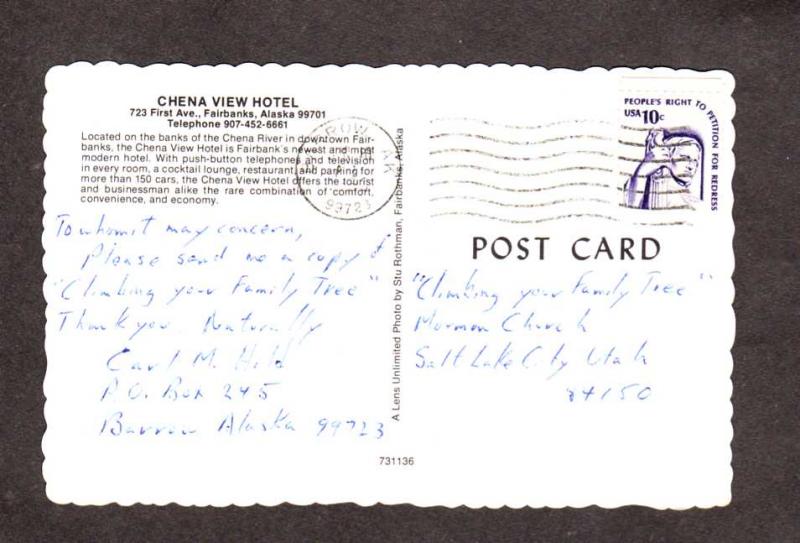 CHENA VIEW HOTEL
723 First Ave., Fairbanks, Alaska 99701
Telephone 907-452-6661
Located on the banks of the Chena River in downtown Fair-
banks, the Chena View Hotel is Fairbank's newest and most
modern hotel. With push-button telephones and television
in every room, a cocktail lounge, restaurant, and parking for
more than 150 cars, the Chena View Hotel offers the tourist
and businessman alike the rare combination of comfort,
convenience, and economy.
To whom it may concern,
Please send me a copy of
"Climbing your Family Tree"
Thank you. Naturally
Carl M. Hild
P.O. Box 245
Barrow Alaska 99723
A Lens Unlimited Photo by Stu Rothman, Fairbanks, Alaska
731136
ROW AK
99723
PEOPLE'S RIGHT TO PETITION FOR REDRESS
USA 10c
POST CARD
"Climbing your Family Tree"
Mormon Church
Salt Lake City Utah
84150